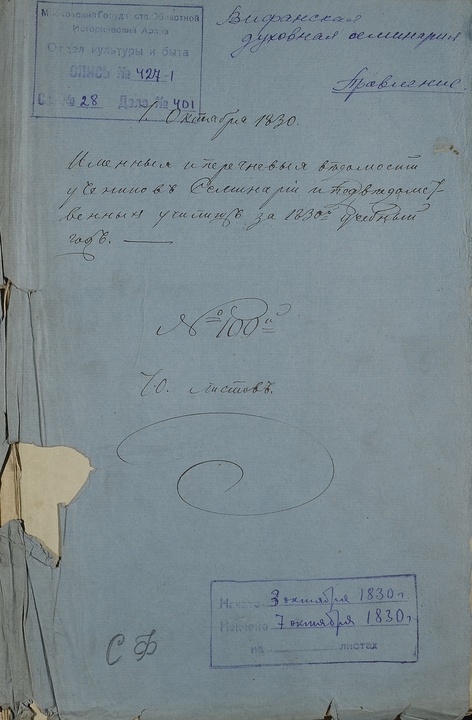 Московский Государств. Областной
Исторический Архив
Отдел культуры и быта
ОПИСЬ № 427-1
Св. № 28 Дело № 401
Вифанская
духовная семинария
Правление.
Октября 1830.
Именныя и перечневыя вѣдомости
учениковъ Семинаріи и подвѣдомст-
венныхъ училищъ за 1830й учебный
годъ.
№ 100й
70. листовъ.
Начато 3 октября 1830 г.
Кончено 7 октября 1830 г.
на листах
СФ